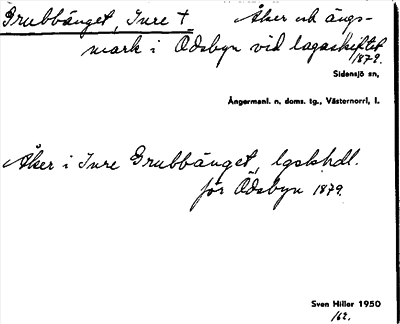 Grubbänget, Inre + Åker och ängs-
mark i Ödsbyn vid lagaskiftet
1879.
Sidensjö sn,
Ångermanl. n. doms. tg., Västernorrl. l.
Åker i Inre Grubbänget, lgskhdl.
för Ödsbyn 1879.
Sven Hiller 1950
/62.